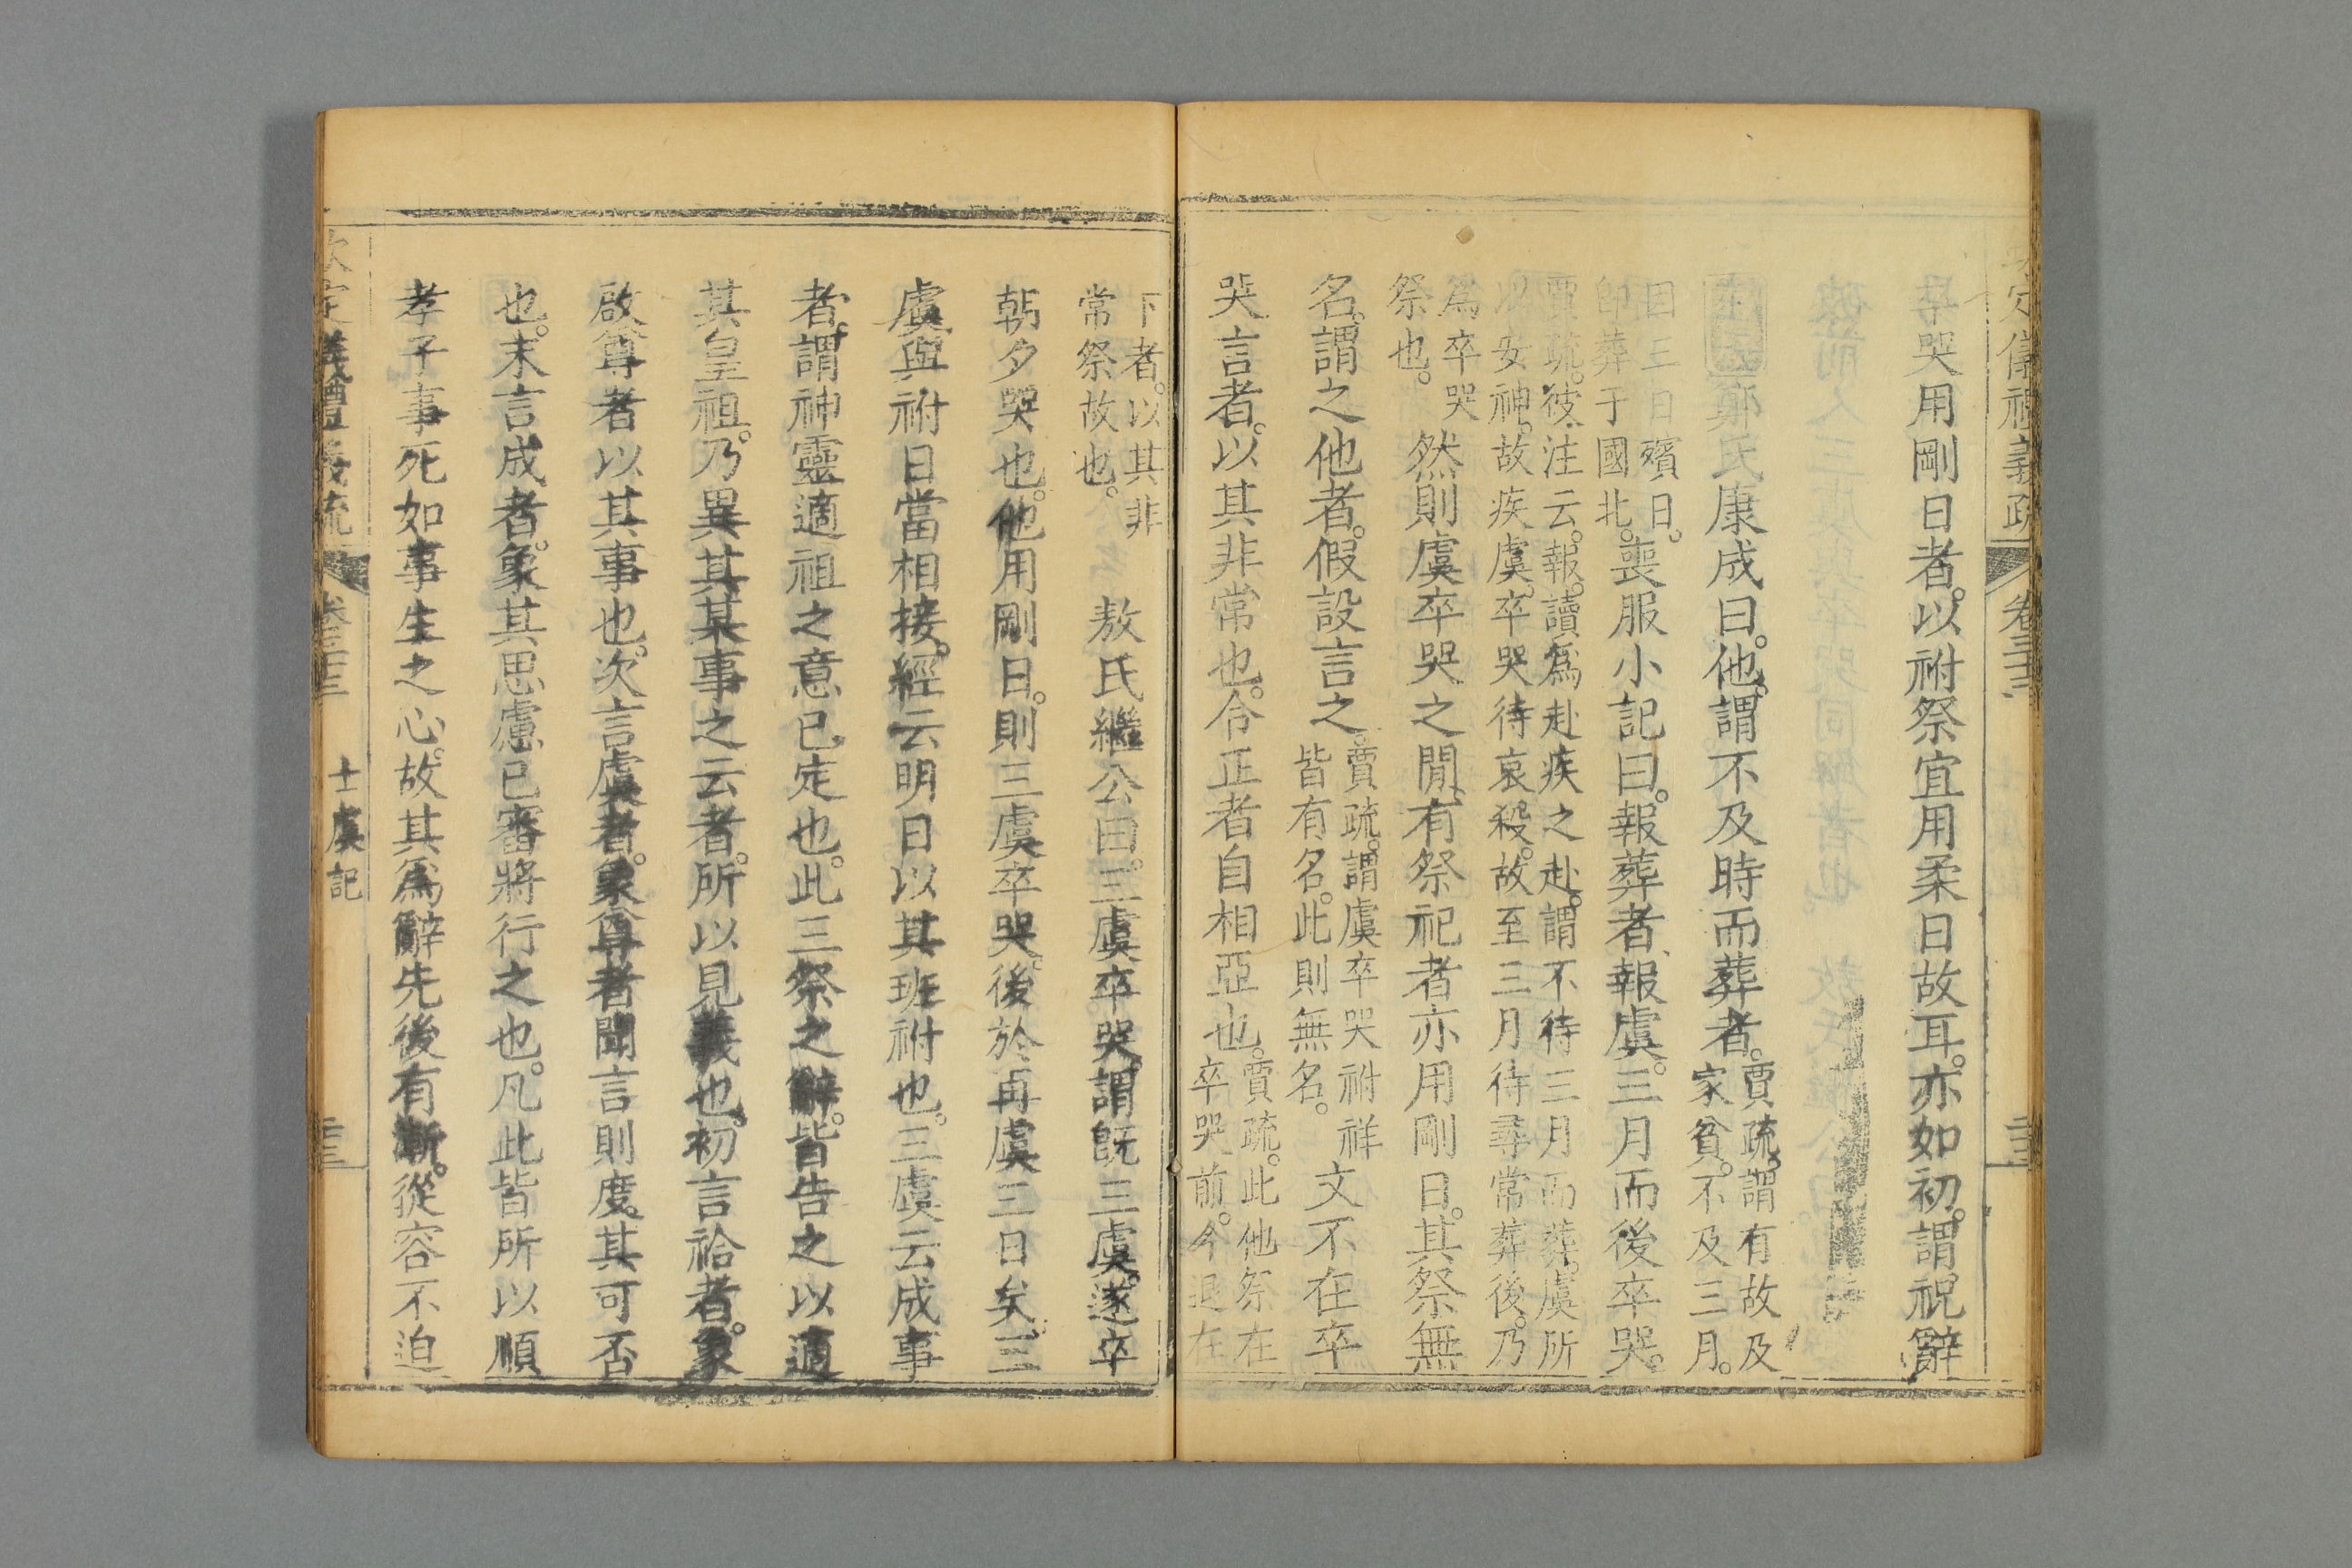 欽定儀禮義疏 卷三十三
哭用剛日者。以祔祭宜用柔日故耳。亦如初。謂祝辭
鄭氏康成曰。他。謂不及時而葬者。賈疏。謂有故及家貧。不及三月。
因三日殯日。即葬于國北。喪服小記曰。報葬者、報虞。三月而後卒哭。
賈疏。彼注云。報。讀爲赴疾之赴。謂不待三月而葬。虞所以安神。故疾虞。卒哭待哀殺。故至三月待尋常葬後。乃
爲卒哭祭也。然則虞卒哭之閒。有祭祀者亦用剛日。其祭無
名。謂之他者。假設言之。賈疏。謂虞卒哭祔祥皆有名。此則無名。文不在卒
哭言者。以其非常也。令正者自相亞也。賈疏。此他祭在卒哭前。今退在
下者。以其非常祭故也。敖氏繼公曰。三虞卒哭。謂旣三虞。遂卒
朝夕哭也。他用剛日。則三虞卒哭。後於再虞三日矣。三
虞與祔日當相接。經云明日以其班祔也。三虞云成事
者。謂神靈適祖之意已定也。此三祭之辭。皆告之以適
其皇祖。乃異其某事之云者。所以見義也。初言祫者。象
啟尊者以其事也。次言虞者。象尊者聞言則度其可否
也。末言成者。象其思慮已審將行之也。凡此皆所以順
孝子事死如事生之心。故其爲辭先後有漸。從容不迫
欽定儀禮義疏 卷三十三 士虞記